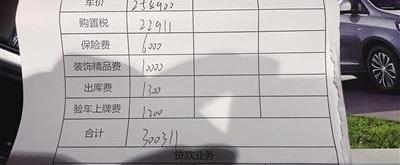 车价 258900
购置税 22911
保险费 6000
装饰精品费 10000
出库费 1300
验车上牌费 1200
合计 300311
贷款业务